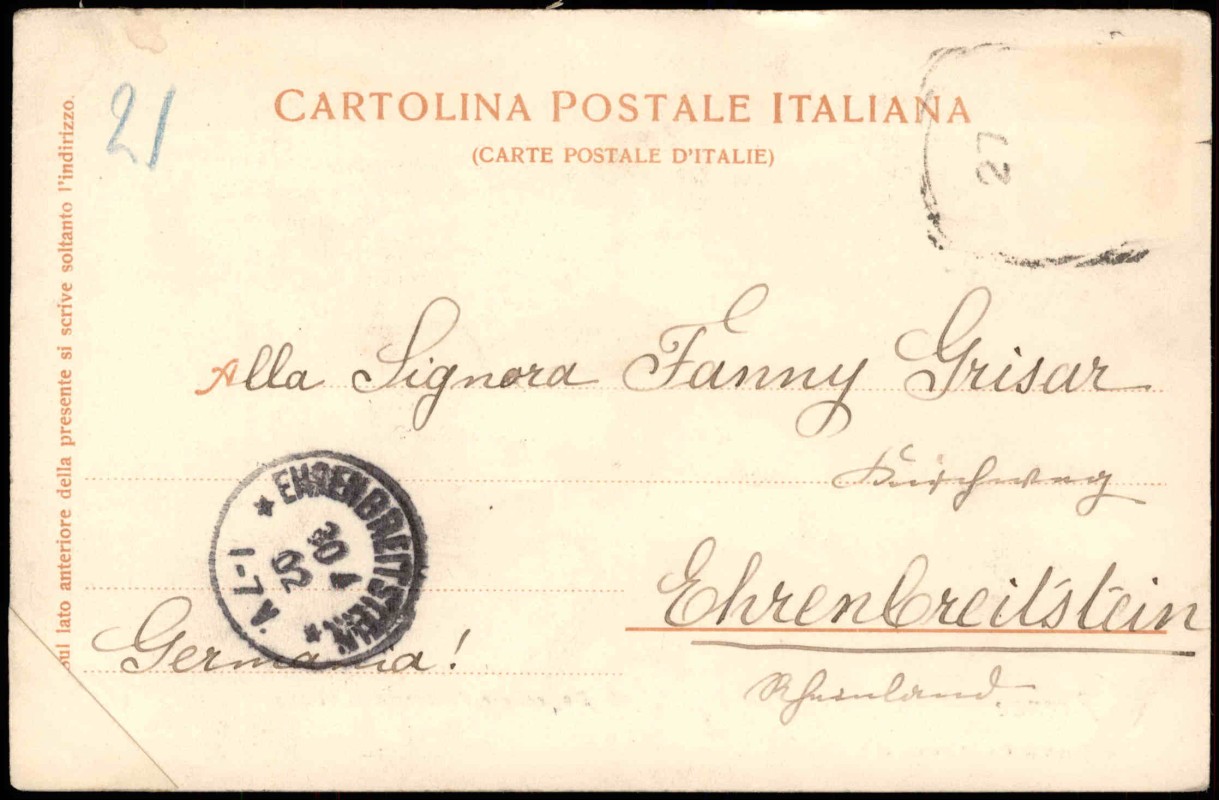 21
CARTOLINA POSTALE ITALIANA
(CARTE POSTALE D'ITALIE)
27
Sul lato anteriore della presente si scrive soltanto l'indirizzo.
Alla Signora Fanny Grisar
Ehrenbreitstein
Rheinland
Germania!
EHRENBREITSTEIN
30 4
02
A. 7-1